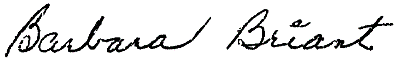 Barbara Briant